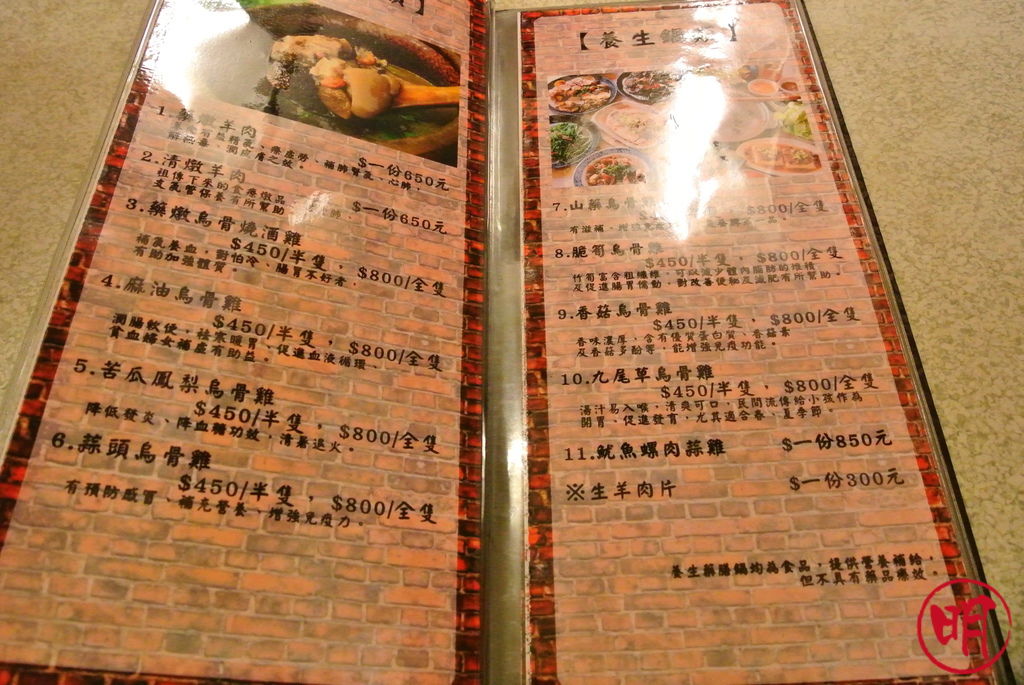 】
1.藥燉羊肉
$一份650元
解燥毒、潤皮膚之效。
2.清燉羊肉
$一份650元
祖傳下來的食療傲品
支氣管保養有所幫助
3.藥燉烏骨燒酒雞
$450/半隻，$800/全隻
補氣養血，對怕冷、腸胃不好者，
有助加強體質。
4.麻油烏骨雞
$450/半隻，$800/全隻
潤腸軟便，祛寒暖胃，促進血液循環、
貧血婦女補虛有助益。
5.苦瓜鳳梨烏骨雞
$450/半隻，$800/全隻
降低發炎、降血糖功效，清暑退火。
6.蒜頭烏骨雞
$450/半隻，$800/全隻
有預防感冒、補充營養、增強免疫力。
【養生鍋
】
7.山藥烏骨
$800/全隻
有滋補、增強免疫
8.脆筍烏骨雞
$450/半隻，$800/全隻
竹筍富含粗纖維，可以減少體內脂肪的堆積
及促進腸胃蠕動，對改善便秘及減肥有所幫助。
9.香菇烏骨雞
$450/半隻，$800/全隻
香味濃厚，含有優質蛋白質、香菇素
及香菇多酚等，能增強免疫功能。
10.九尾草烏骨雞
$450/半隻，$800/全隻
湯汁易入喉，清爽可口，民間流傳給小孩作為
開胃、促進發育，尤其適合春、夏季節。
11.魷魚螺肉蒜雞 $一份850元
※生羊肉片 $一份300元
養生藥膳鍋均為食品，提供營養補給，
但不具有藥品療效。
明